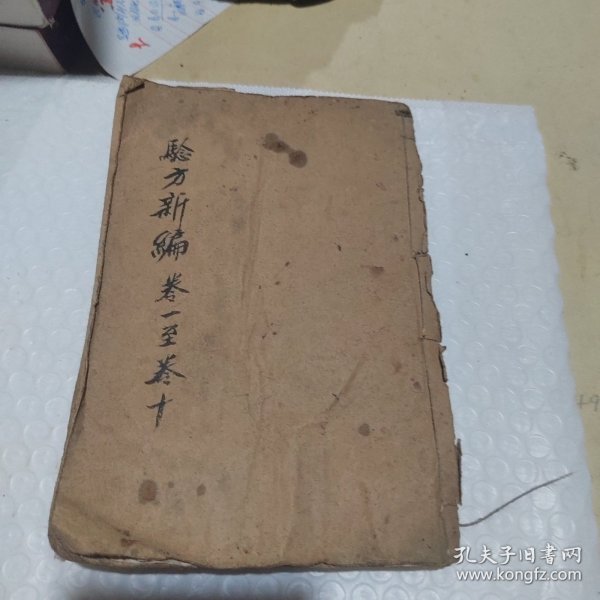 驗方新編卷一至卷十
孔夫子旧書网
www.kongfz.com